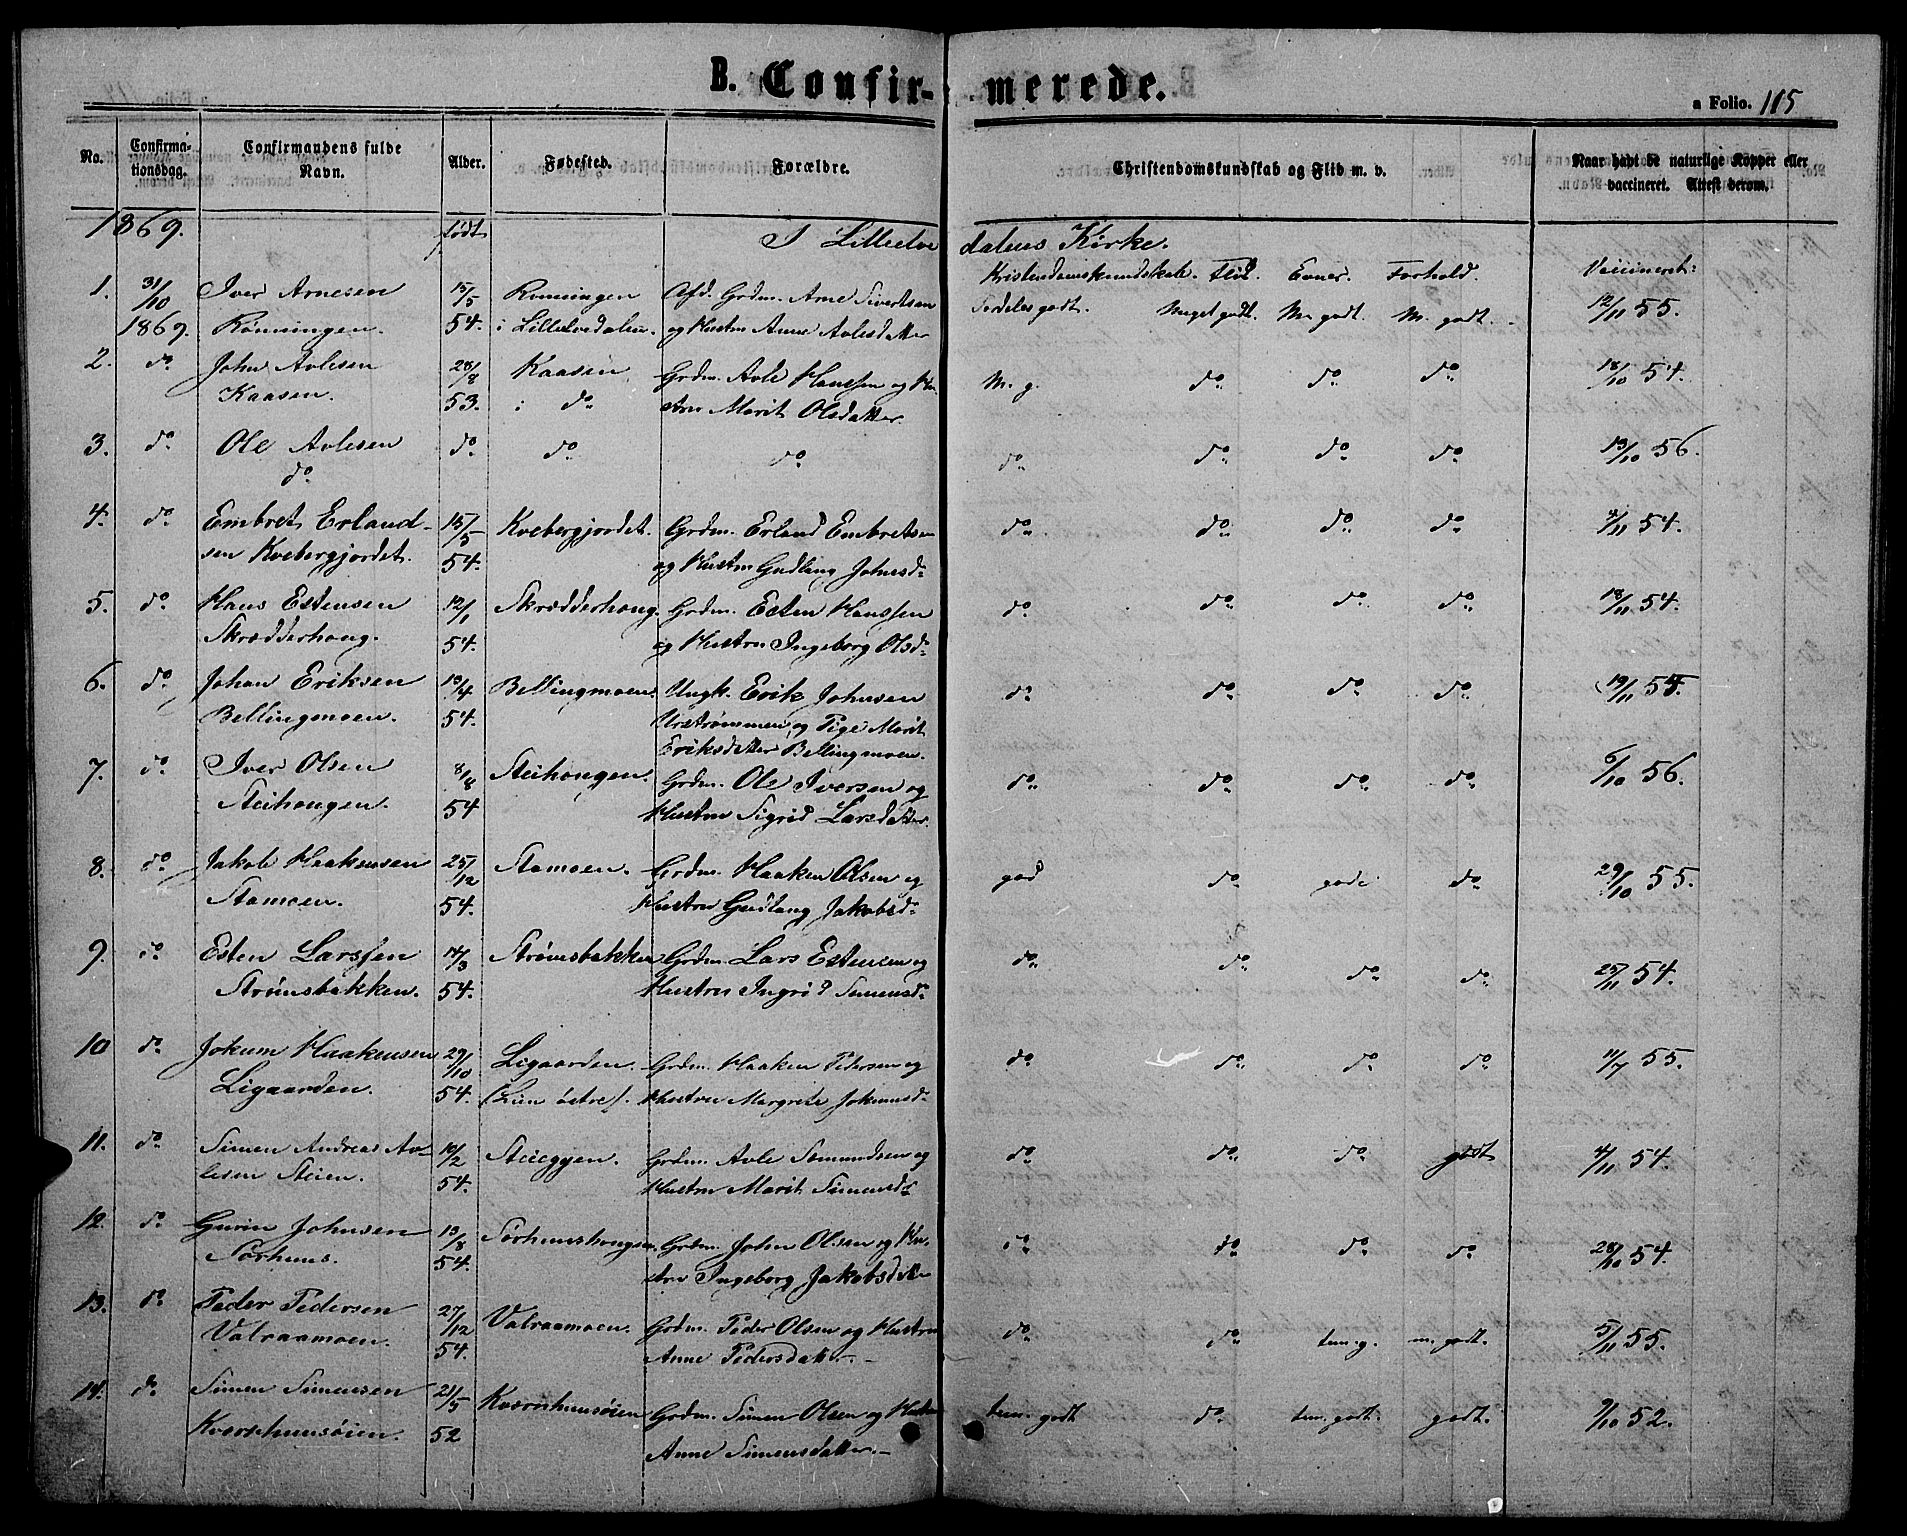 B. Confir-merede.
a Folio. 115
No. Confirmationsdag. Confirmandens fulde Navn. Alder. Fødested. Forældre. Christendomskundskab og Flid m. v. Naar havt de naturlige Kopper eller vaccineret. Attest derom.
1869. født I Lilleelvedalens Kirke.
Kristendomskundskab. Flid. Evner. Forhold. Vaccineret:
1. 31/10 Iver Arnesen 15/5 Rønningen Afd. Grdm. Arne Sivertsen Særdeles godt. Meget godt. M. godt. M. godt. 12/11 55.
1869. Rønningen. 54. i Lilleelvedalen. og Hustru Anne Avlesdatter
2. do John Avlesen 28/8 Kaasen Grdm. Avle Hanssen og Hu- M. g. do do do 18/10 54.
Kaasen. 53. i do stru Marit Olsdatter.
3. do Ole Avlesen do do do do do do do 13/10 56.
do
4. do Embret Erland- 15/5 Kvebergjordet. Grdm. Erland Embretsen do do do do 4/11 54.
sen Kvebergjordet. 54. og Hustru Gudlaug Johnsd.
5. do Hans Estensen 12/1 Skrædderhaug. Grdm. Esten Hanssen do do do do 18/11 54.
Skrædderhaug. 54. og Hustru Ingeborg Olsd.
6. do Johan Eriksen 13/4 Bellingmoen. Ungk. Erik Johnsen do do do do 19/11 54.
Bellingmoen. 54. Urstrømmen, og Pige Marit
Eriksdatter Bellingmoen.
7. do Iver Olsen 8/8 Steihaugen. Grdm. Ole Iversen og do do do do 6/10 56.
Steihaugen. 54 Hustru Sigrid Larsdatter.
8. do Jakob Haakensen 25/12 Stamoen. Grdm. Haaken Olsen og god do gode do 29/10 55.
Stamoen. 54. Hustru Gudlaug Jakobsd.
9. do Esten Larssen 14/3 Strømsbakken Grdm. Lars Estensen og do do do do 25/11 54.
Strømsbakken. 54. Hustru Ingrid Simensd.
10 do Jokum Haakensen 29/10 Ligaarden. Grdm. Haaken Pedersen og do do do do 11/7 55.
Ligaarden. 54. (Lien østre). Hustru Margrete Jokumsd.
11. do Simen Andreas Av- 10/2 Steieggen. Grdm. Avle Semundsen og do do do godt 4/11 54.
lesen Steien. 54. Hustru Marit Simensd.
12. do Gurin Johnsen 13/8 Sørhuushaugen. Grdm. John Olsen og Hu- do do do do 28/10 54.
Sørhuus. 54. stru Ingeborg Jakobsdatter
13. do Peder Pedersen 27/12 Valraamoen. Grdm. Peder Olsen og Hustru do do tem. g. m. godt. 5/11 55.
Valraamoen. 54. Anne Pedersdatter.
14. do Simen Simensen 21/5 Kværnhuusøien Grdm. Simen Olsen og Hustru tem. godt do tem. godt. godt. 9/10 52.
Kværnhuusøien. 52 Anne Simensdatter.